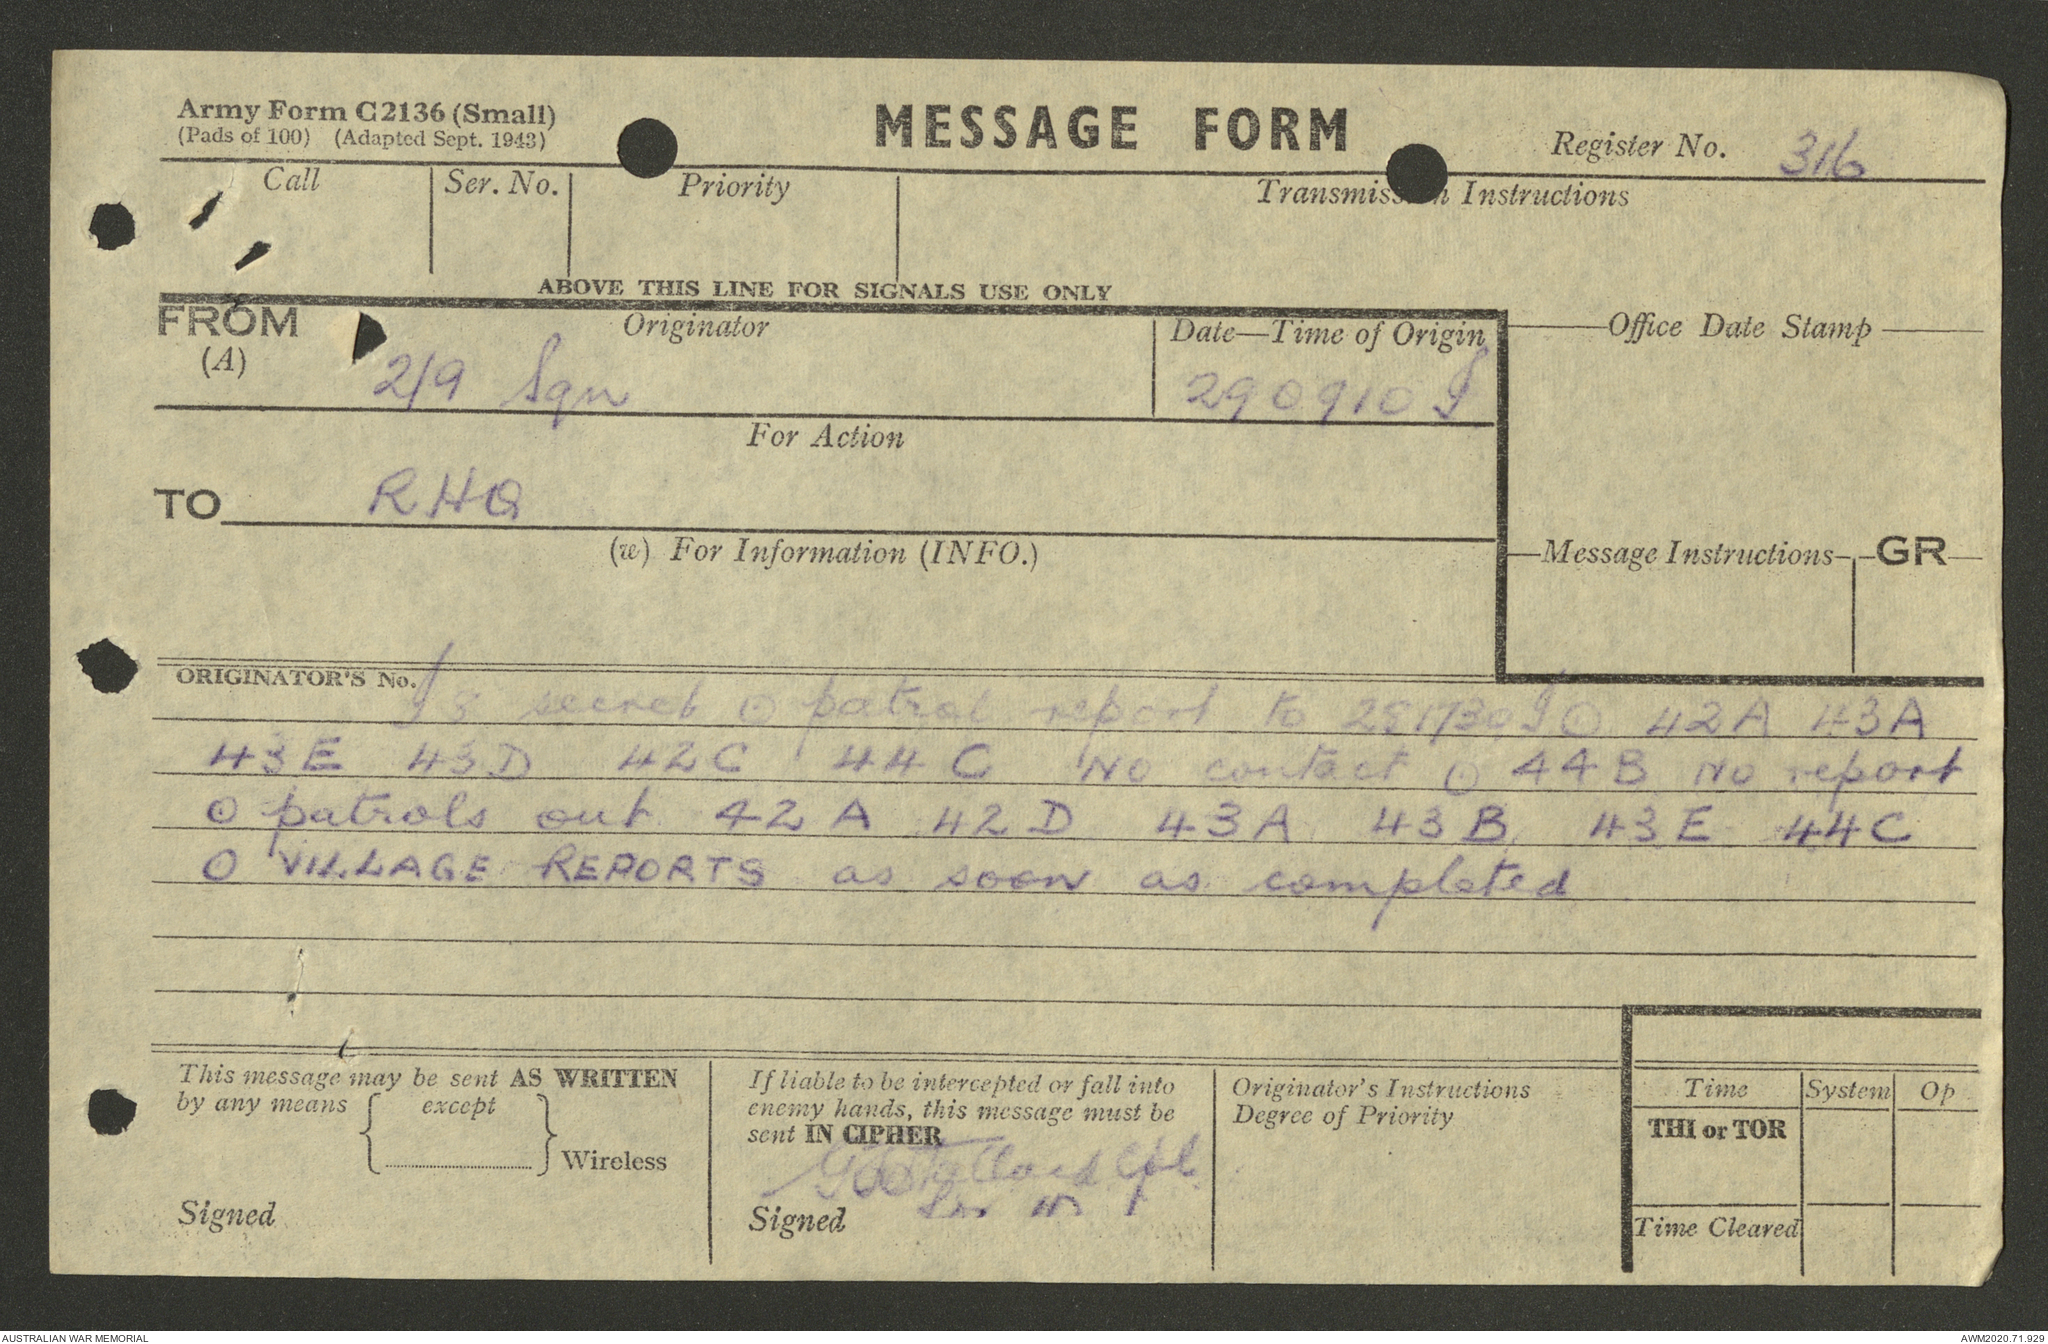 Army Form C2136 (Small)
(Pads of 100) (Adapted Sept. 1943)
MESSAGE FORM
Register No. 316
Call
Ser. No.
Priority
Transmiss n Instructions
ABOVE THIS LINE FOR SIGNALS USE ONLY
FROM
(A)
Originator
2/9 Sqn
Date—Time of Origin
290910 I
Office Date Stamp
For Action
TO RHQ
(w) For Information (INFO.)
Message Instructions
GR
ORIGINATOR'S No.
secret ⊙ patrol report to 281730 I ⊙ 42A 43A
43E 43D 42C 44C No contact ⊙ 44B No report
⊙ patrols out 42A 42D 43A 43B 43E 44C
O VILLAGE REPORTS as soon as completed
This message may be sent AS WRITTEN
by any means except
Wireless
Signed
If liable to be intercepted or fall into
enemy hands, this message must be
sent IN CIPHER
Cpl
Signed
Originator's Instructions
Degree of Priority
Time
System
Op
THI or TOR
Time Cleared
AUSTRALIAN WAR MEMORIAL
AWM2020.71.929